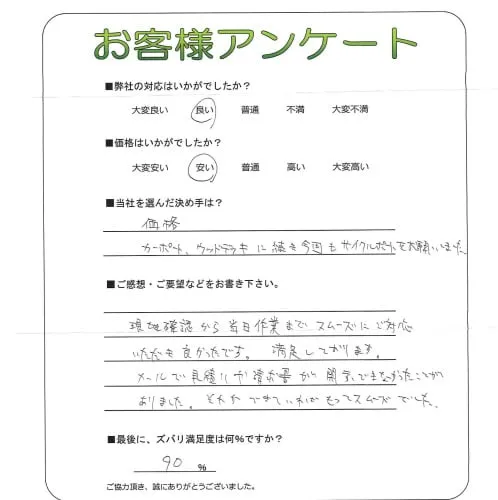 お客様アンケート
■弊社の対応はいかがでしたか?
大変良い 良い 普通 不満 大変不満
■価格はいかがでしたか?
大変安い 安い 普通 高い 大変高い
■当社を選んだ決め手は?
価格
カーポート、ウッドデッキに続き今回もサイクルポートをお願いしました
■ご感想・ご要望などをお書き下さい。
現地確認から当日作業までスムーズにご対応
いただき良かったです。満足しております。
メールで見積りや請求書が開けできなかったことが
ありました。それができていればもってスムーズでした。
■最後に、ズバリ満足度は何%ですか?
90 %
ご協力頂き、誠にありがとうございました。